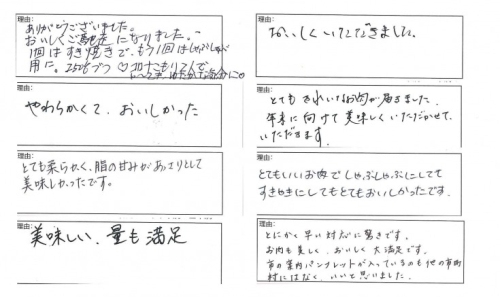 理由:
ありがとうございました。
おいしくご馳走になりました。
1回はすき焼きで、もう1回はしゃぶしゃぶ
用に。250gずつ
理由:
やわらかくて、おいしかった
理由:
とても柔らかく、脂の甘みがあっさりとして
美味しかったです。
理由:
美味しい、量も満足
理由:
おいしくいただきました。
理由:
とてもきれいなお肉が届きました。
年末に向けて美味しくいただかせて
いただきます。
理由:
とてもいいお肉でしゃぶしゃぶにしても
すきやきにしてもとてもおいしかったです。
理由:
とにかく早い対応に驚きです。
お肉も美しく、おいしく大満足です。
市の案内パンフレットが入っているのも他の市町
村にはなく、いいと思いました。